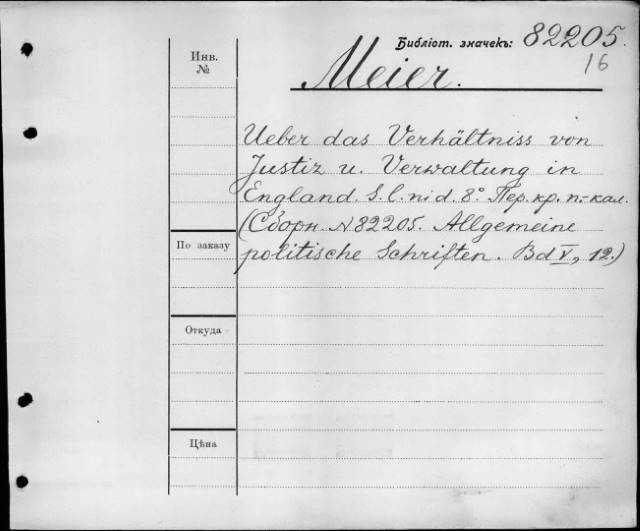 Библіот. значекъ: 82205.
16
Инв.
№
Meier.
Ueber das Verhältniss von
Justiz u. Verwaltung in
England. S. l. ni d. 8° Пер. кр. п.-кал.
(Сборн. N 82205. Allgemeine
politische Schriften. Bd V, 12.)
По заказу
Откуда
Цѣна